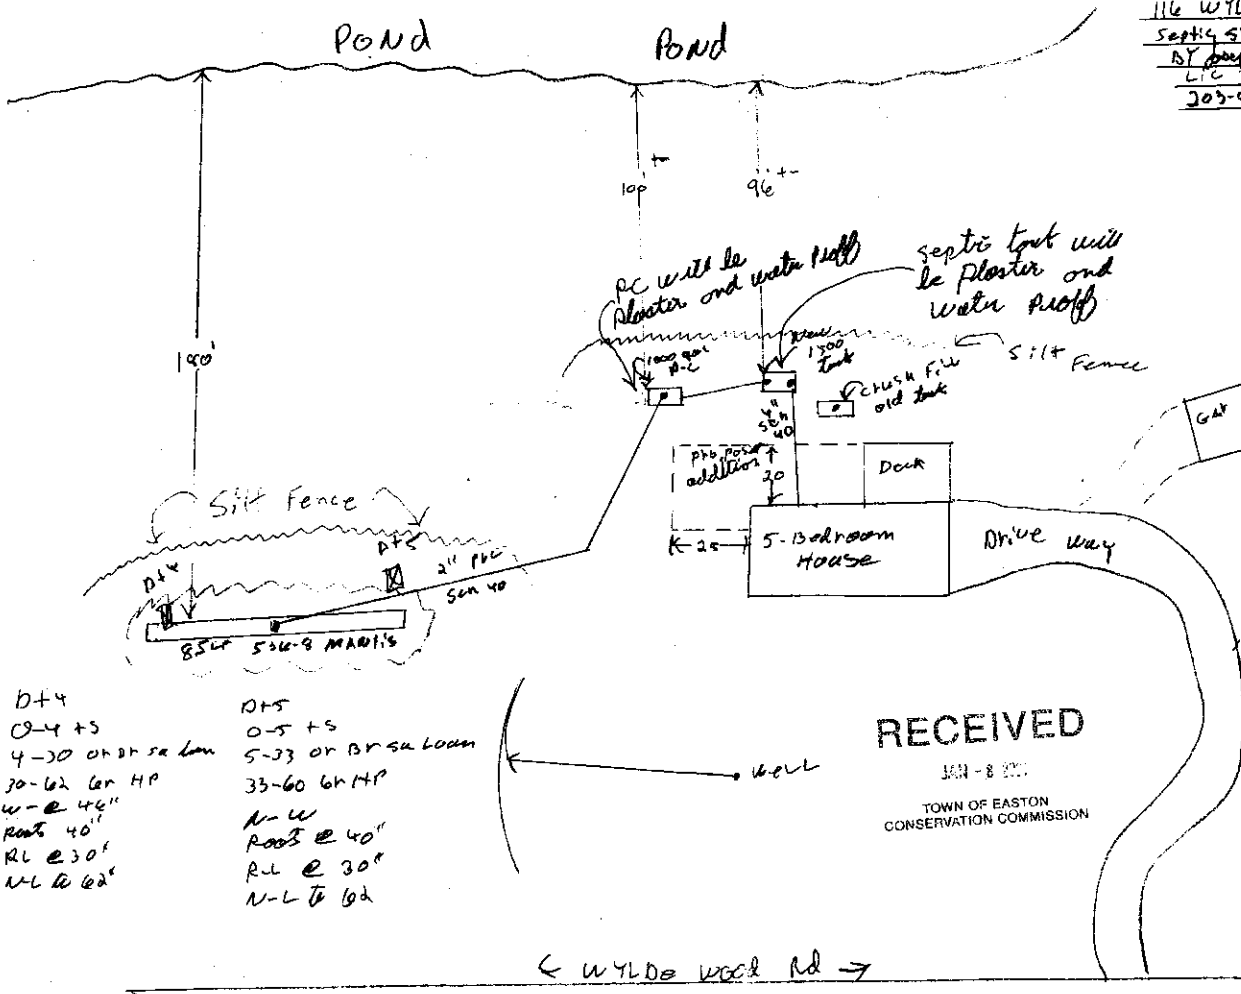 116 WYL
Septic S
BY
LIC
203-
POND
POND
100 +-
96' +-
PC will be
Plaster and water Proff
septic tank will
be Plaster and
water Proff
190'
1000 gal
P-C
New
1500
tank
Silt Fence
Crush Fill
old tank
4"
SCH
40
proposed
addition
20
Deck
GAR
Silt Fence
25
5-Bedroom
House
Drive way
Dt4
Dt5
2" PVC
SCH 40
85LF 536-8 MANTIS
Dt4
0-4 TS
4-30 or Br sa Loam
30-62 Gr HP
W-@ 46"
Roots 40"
RL @ 30"
N-L to 62"
Dt5
0-5 TS
5-33 or Br sa Loam
33-60 Gr HP
N-W
Roots @ 40"
R-L @ 30"
N-L to 62
well
RECEIVED
JAN - 8
TOWN OF EASTON
CONSERVATION COMMISSION
← WYLDE WOOD Rd →